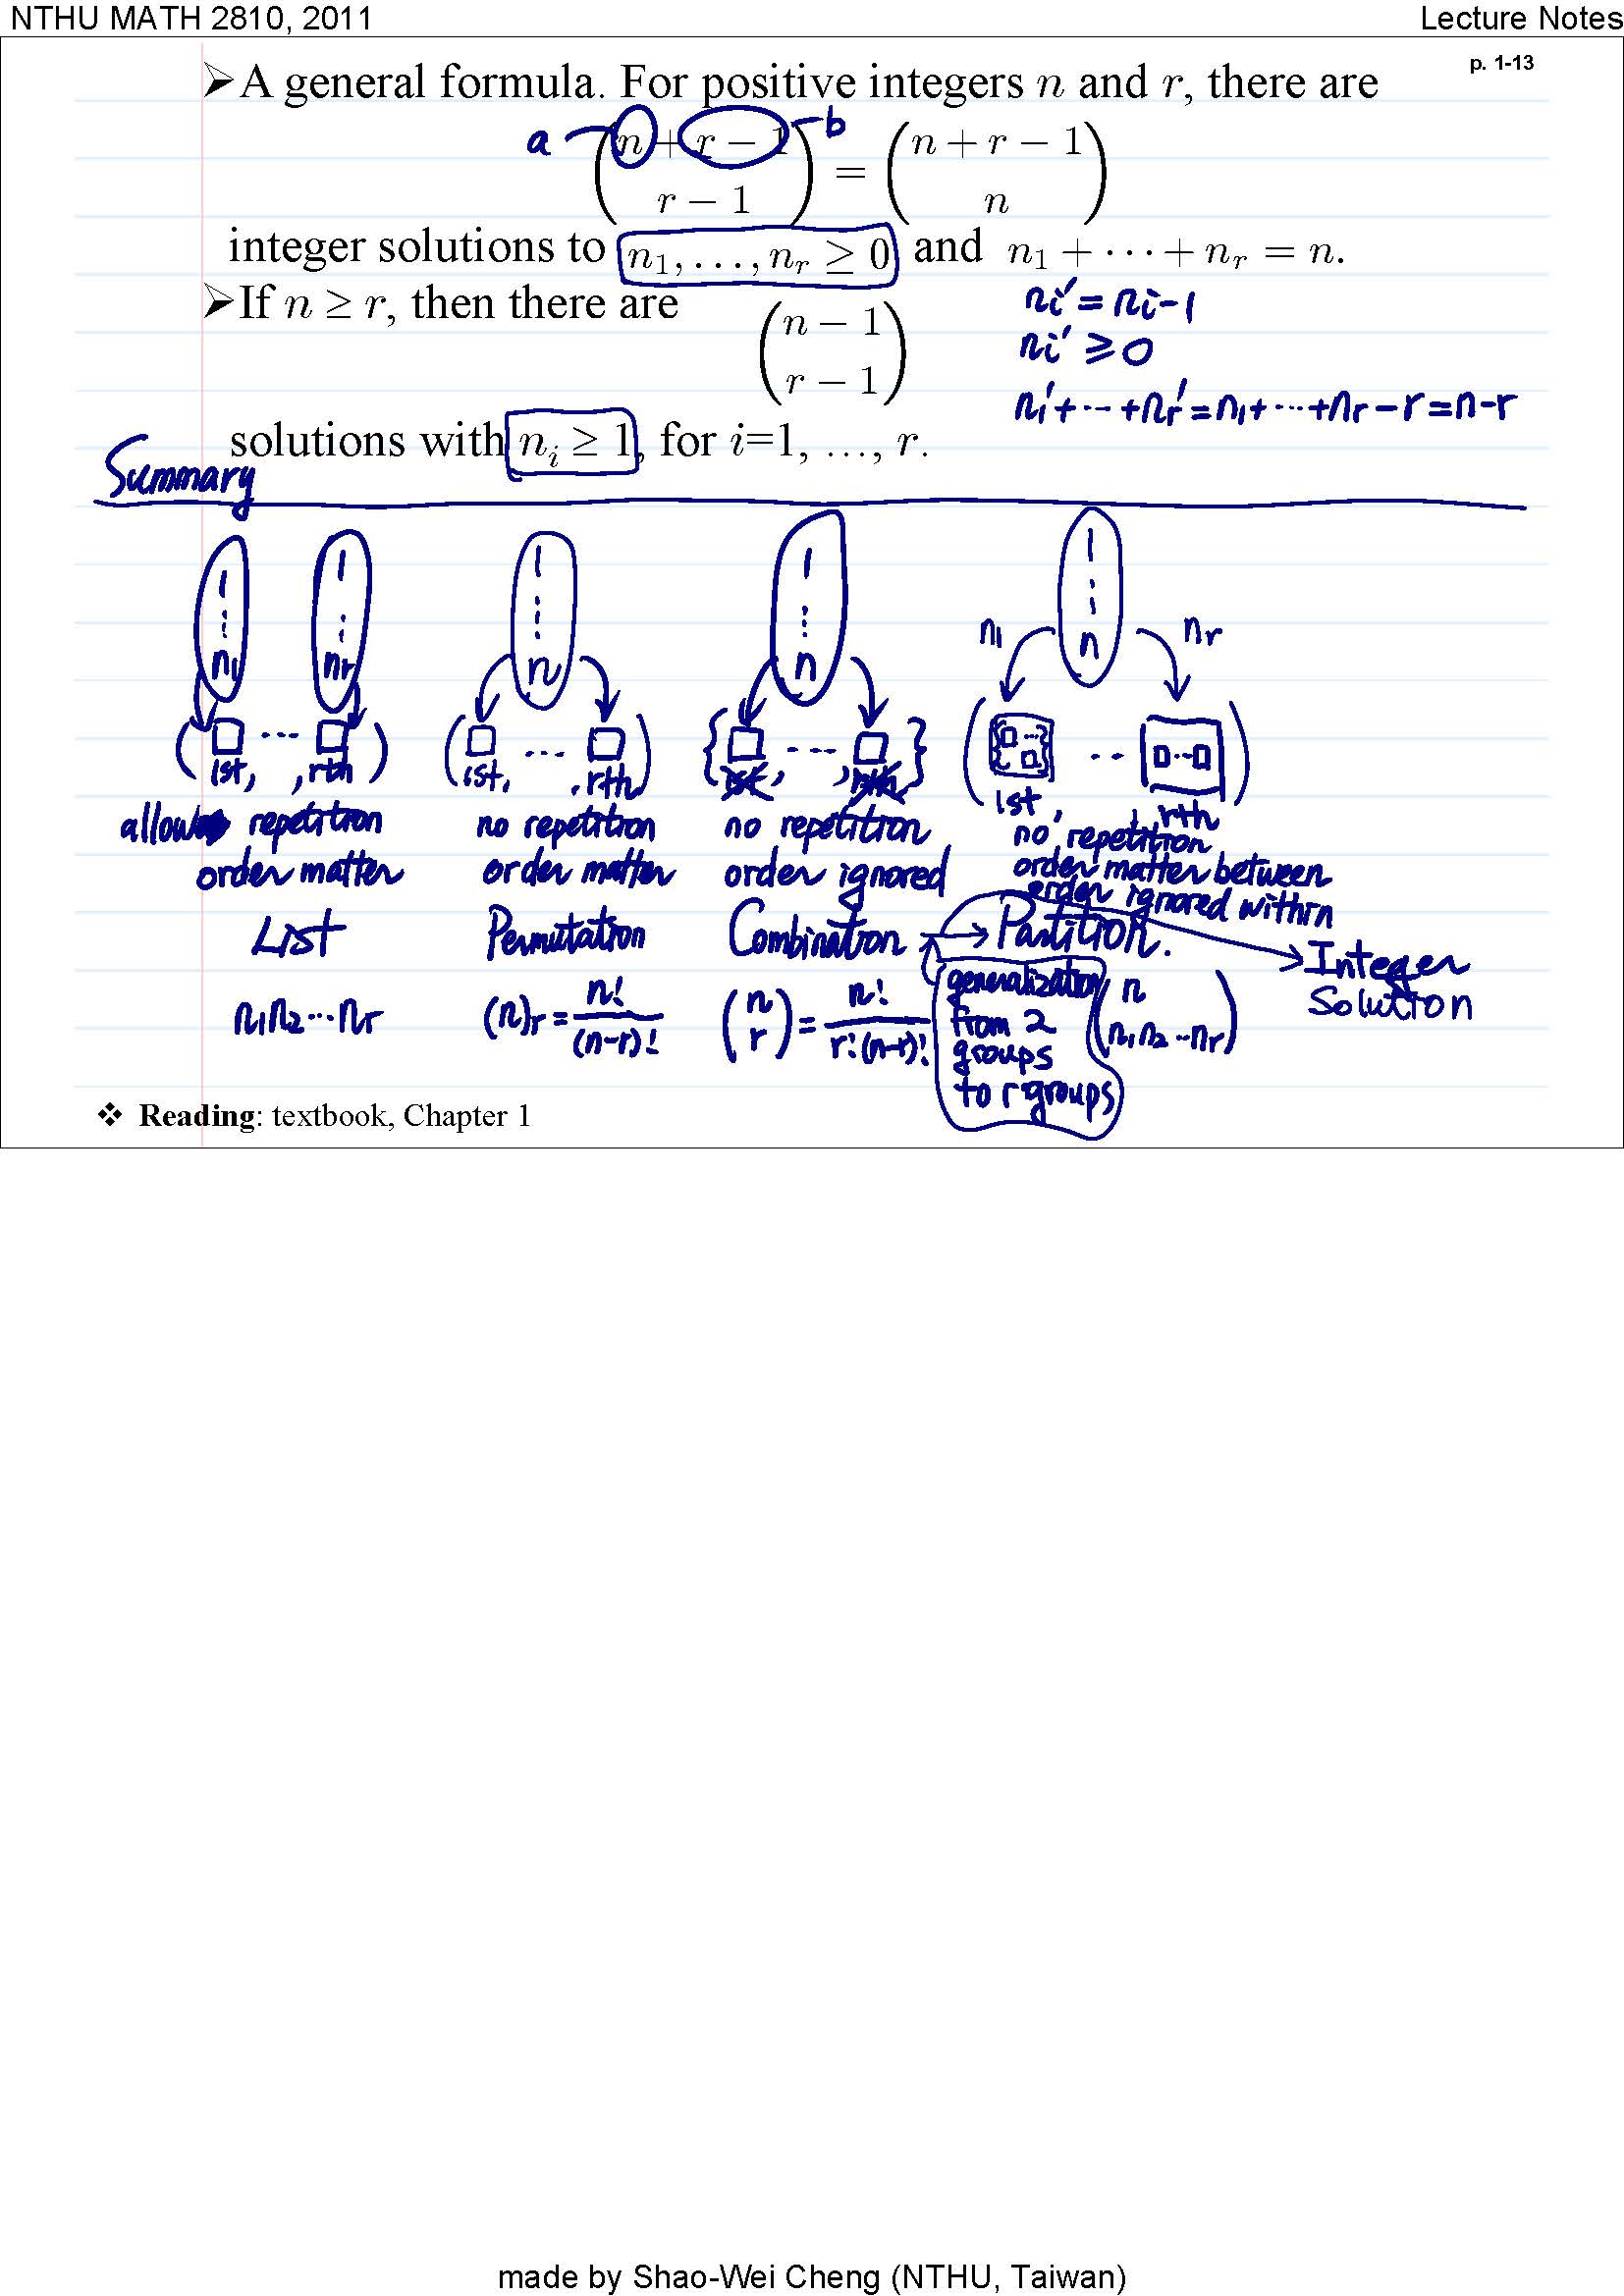 NTHU MATH 2810, 2011 Lecture Notes
p. 1-13
➢A general formula. For positive integers n and r, there are
a b
(n + r − 1 / r − 1) = (n + r − 1 / n)
integer solutions to n₁, . . . , nᵣ ≥ 0 and n₁ + · · · + nᵣ = n.
➢If n ≥ r, then there are (n − 1 / r − 1)
solutions with nᵢ ≥ 1, for i=1, …, r.
ni' = ni-1
ni' ≥ 0
n₁'+···+nᵣ' = n₁+···+nᵣ-r = n-r
Summary
1 ⋮ n₁ 1 ⋮ nᵣ
( □ ··· □ )
1st, , rth
allow repetition
order matter
List
n₁n₂···nᵣ
1 ⋮ n
( □ ··· □ )
1st, , rth
no repetition
order matter
Permutation
(n)ᵣ = n!/(n-r)!
1 ⋮ n
{ □ ··· □ }
1st, , rth
no repetition
order ignored
Combination
(n / r) = n!/(r!(n-r)!)
1 ⋮ n
n₁ nᵣ
( {□ ··· □} ·· □···□ )
1st, , rth
no repetition
order matter between
order ignored within
Partition.
(n / n₁n₂···nᵣ)
generalization
from 2
groups
to r groups
Integer
Solution
❖ Reading: textbook, Chapter 1
made by Shao-Wei Cheng (NTHU, Taiwan)